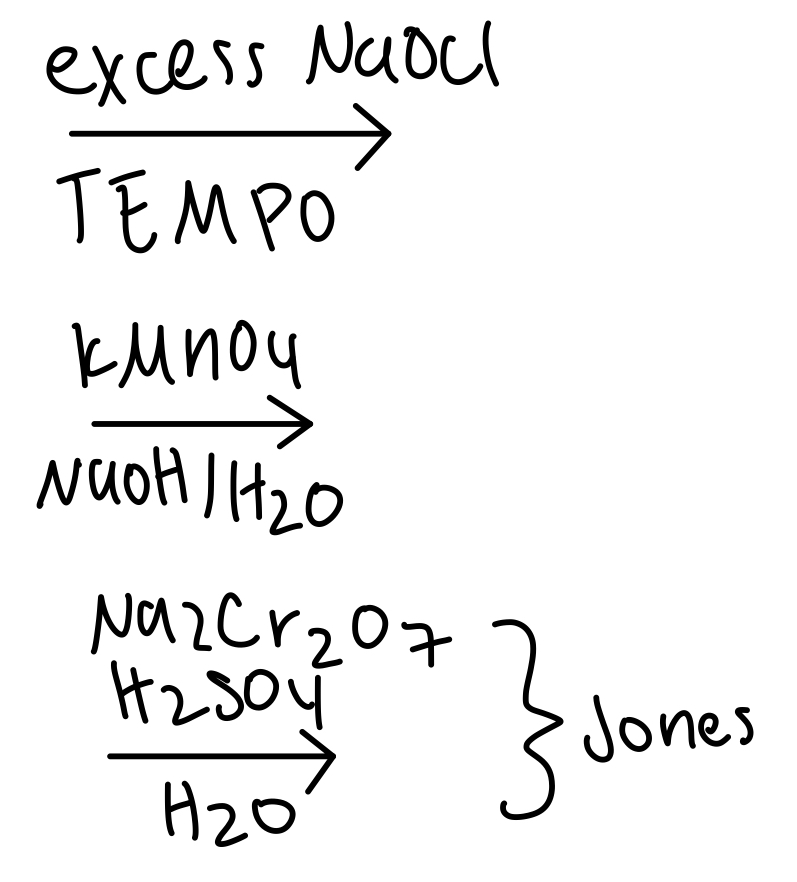 excess NaOCl
TEMPO
KMnO4
NaOH/H2O
Na2Cr2O7
H2SO4
H2O
Jones